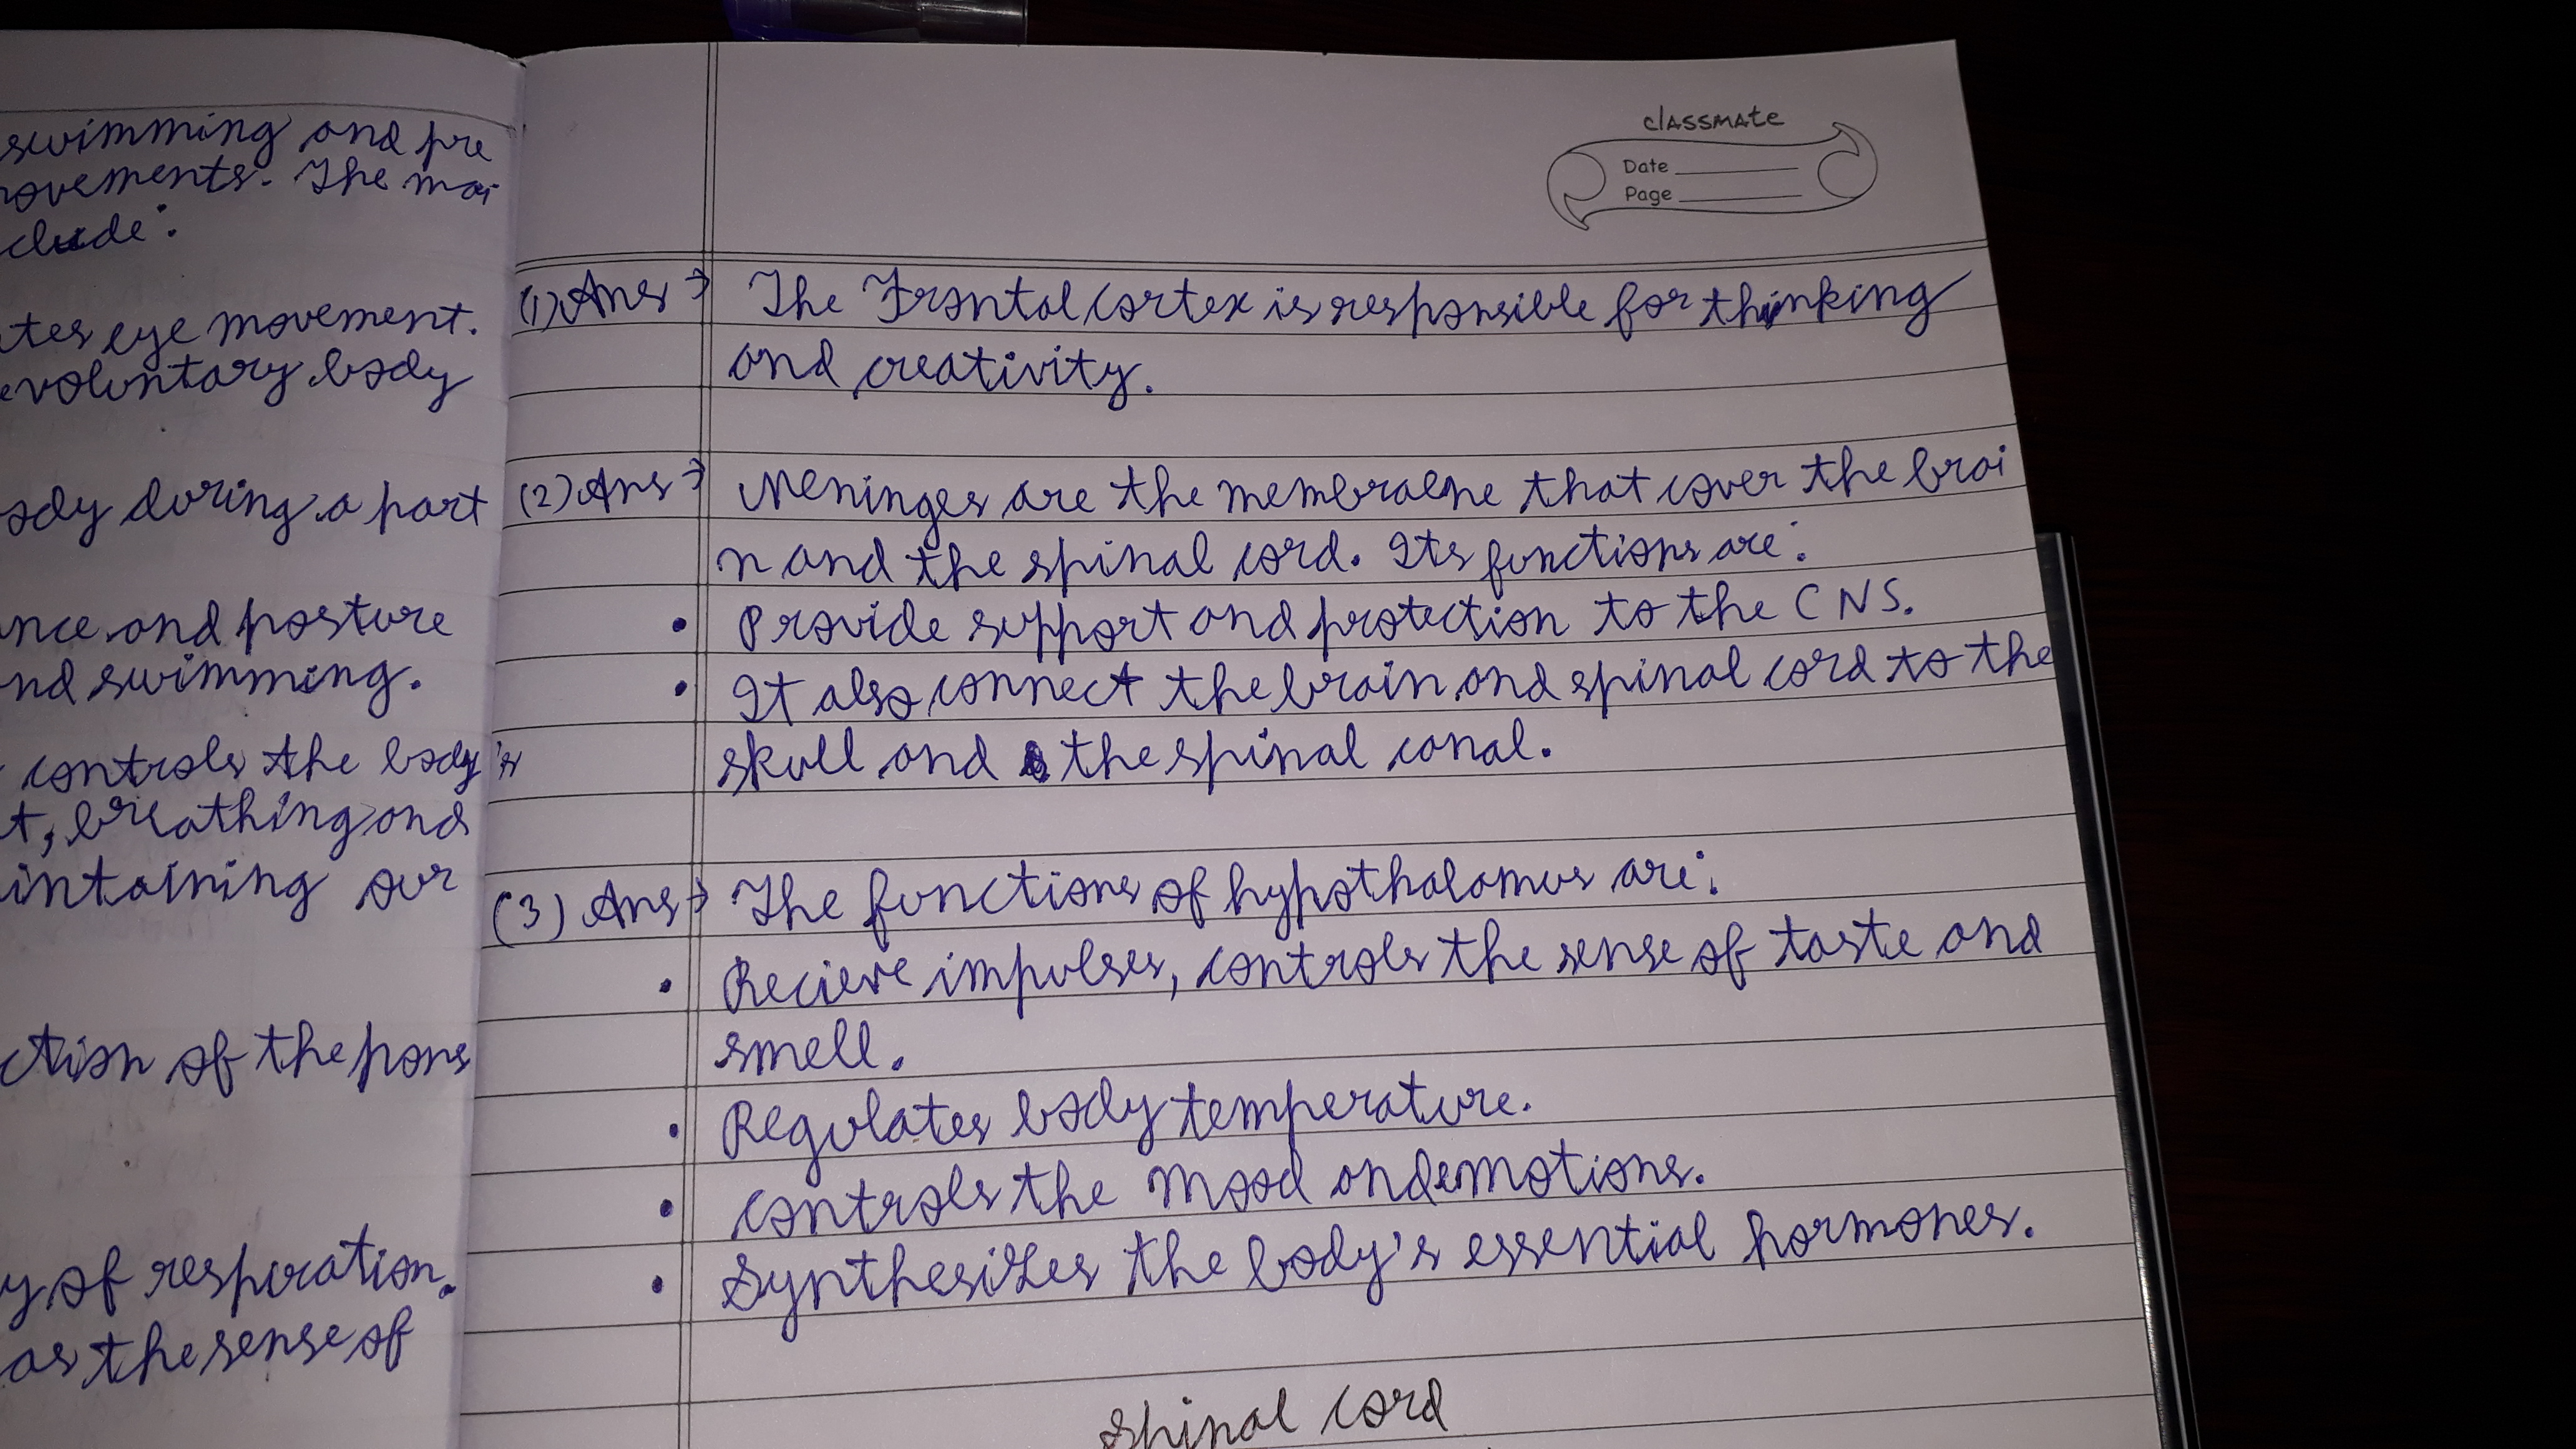 swimming and pre
ovements. The mai
clude:
tes eye movement.
voluntary body
ody during a part
nce and posture
nd swimming.
controls the body's
t, breathing and
intaining our
ction of the pons
y of respiration.
as the sense of
classmate
Date
Page
(1) Ans → The Frontal cortex is responsible for thinking
and creativity.
(2) Ans → Meninges are the membrane that cover the brai
n and the spinal cord. Its functions are:
• Provide support and protection to the CNS.
• It also connect the brain and spinal cord to the
skull and the spinal canal.
(3) Ans → The functions of hypothalamus are:
• Recieve impulses, controls the sense of taste and
smell.
• Regulates body temperature.
• controls the mood and emotions.
• Synthesizes the body's essential hormones.
Spinal cord